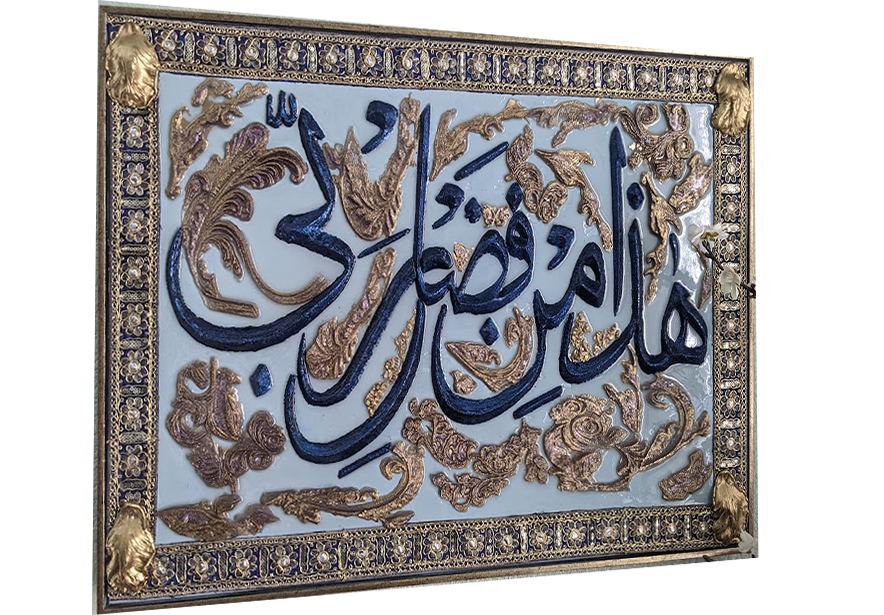 هٰذا مِن فَضْلِ رَبِّي